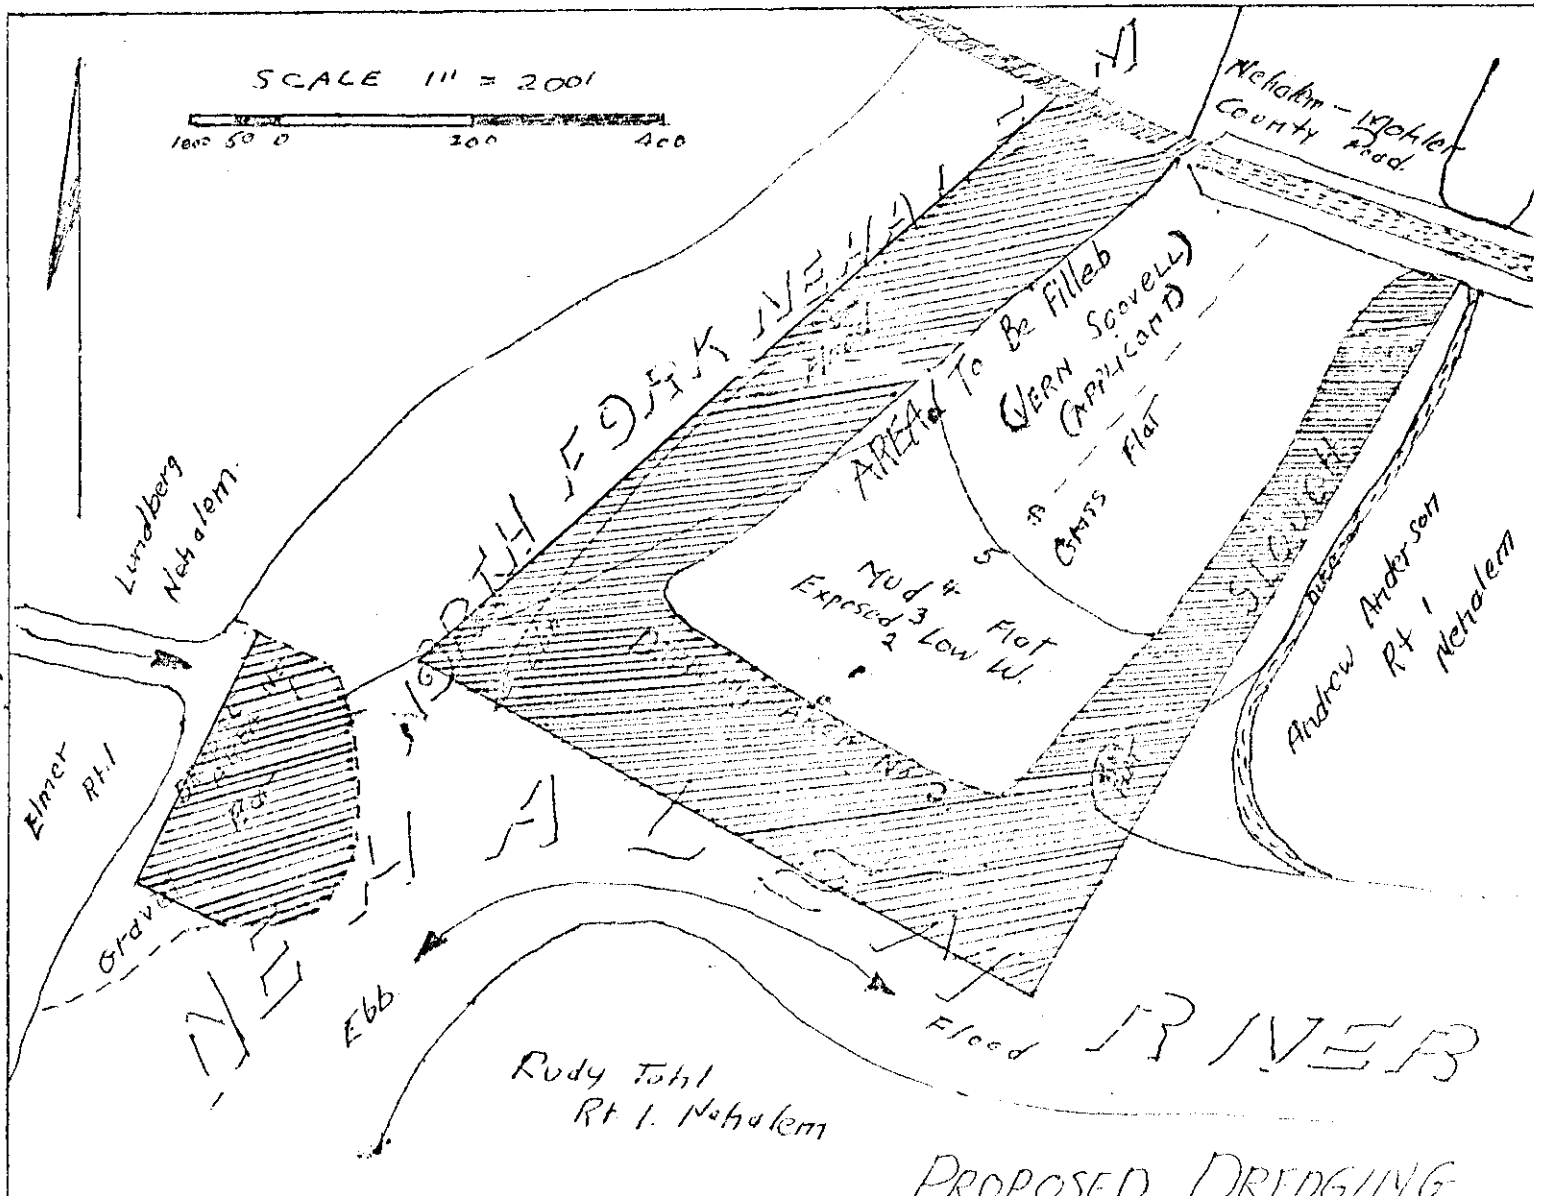 SCALE 1" = 200'
100 50 0 200 400
N
Nehalem - Mohler
County Road
NORTH FORK NEHAL
AREA To Be Filleb
(VERN Scovell)
(APPlicant)
GRASS Flat
Mud Flat
Exposed Low W.
5
4
3
2
SLOUGH
DIKE
Andrew Anderson
Rt 1
Nehalem
Lundberg
Nehalem
Elmer
Rt. 1
Gravel
NEHALEM RIVER
Ebb
Flood
Rudy Tohl
Rt 1. Nehalem
PROPOSED DREDGING